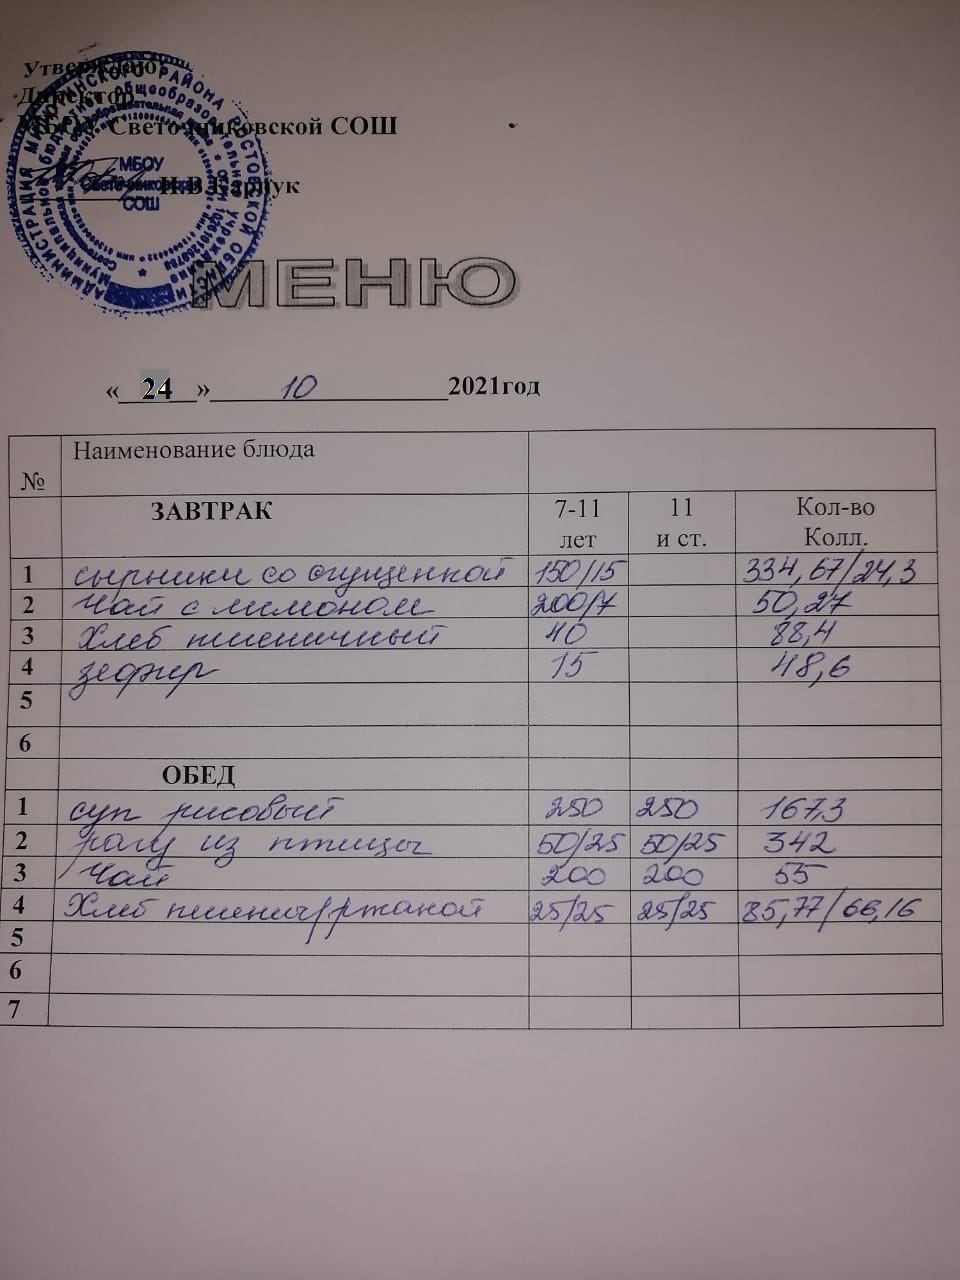 Утверждаю
Директор
МБОУ Светочниковской СОШ
И.В.Карпук
МБОУ
Светочниковская
СОШ
МЕНЮ
« 24 » 10 2021год
№ Наименование блюда
ЗАВТРАК 7-11 лет 11 и ст. Кол-во Колл.
1 сырники со сгущенкой 150/15 334,67/24,3
2 Чай с лимоном 200/7 50,27
3 Хлеб пшеничный 40 88,4
4 зефир 15 48,6
5
6
ОБЕД
1 суп рисовый 250 250 167,3
2 рагу из птицы 50/25 50/25 342
3 Чай 200 200 55
4 Хлеб пшенич/ржаной 25/25 25/25 85,77/66,16
5
6
7